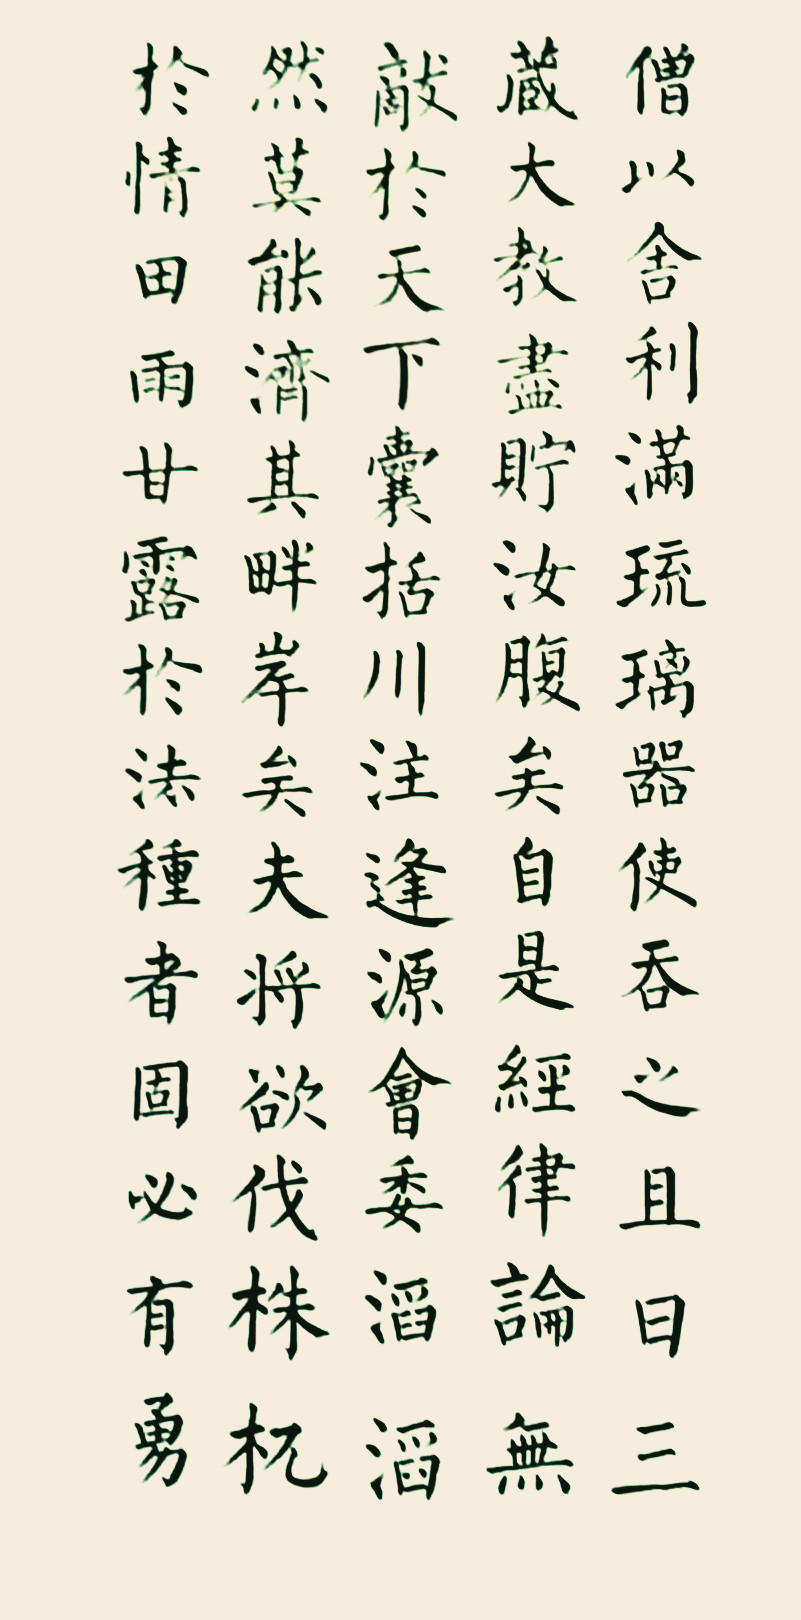 僧以舎利滿琉璃器使吞之且曰三
蔵大教盡貯汝腹矣自是經律論無
敵於天下囊括川注逢源會委滔滔
然莫能濟其畔岸矣夫将欲伐株杌
於情田雨甘露於法種者固必有勇